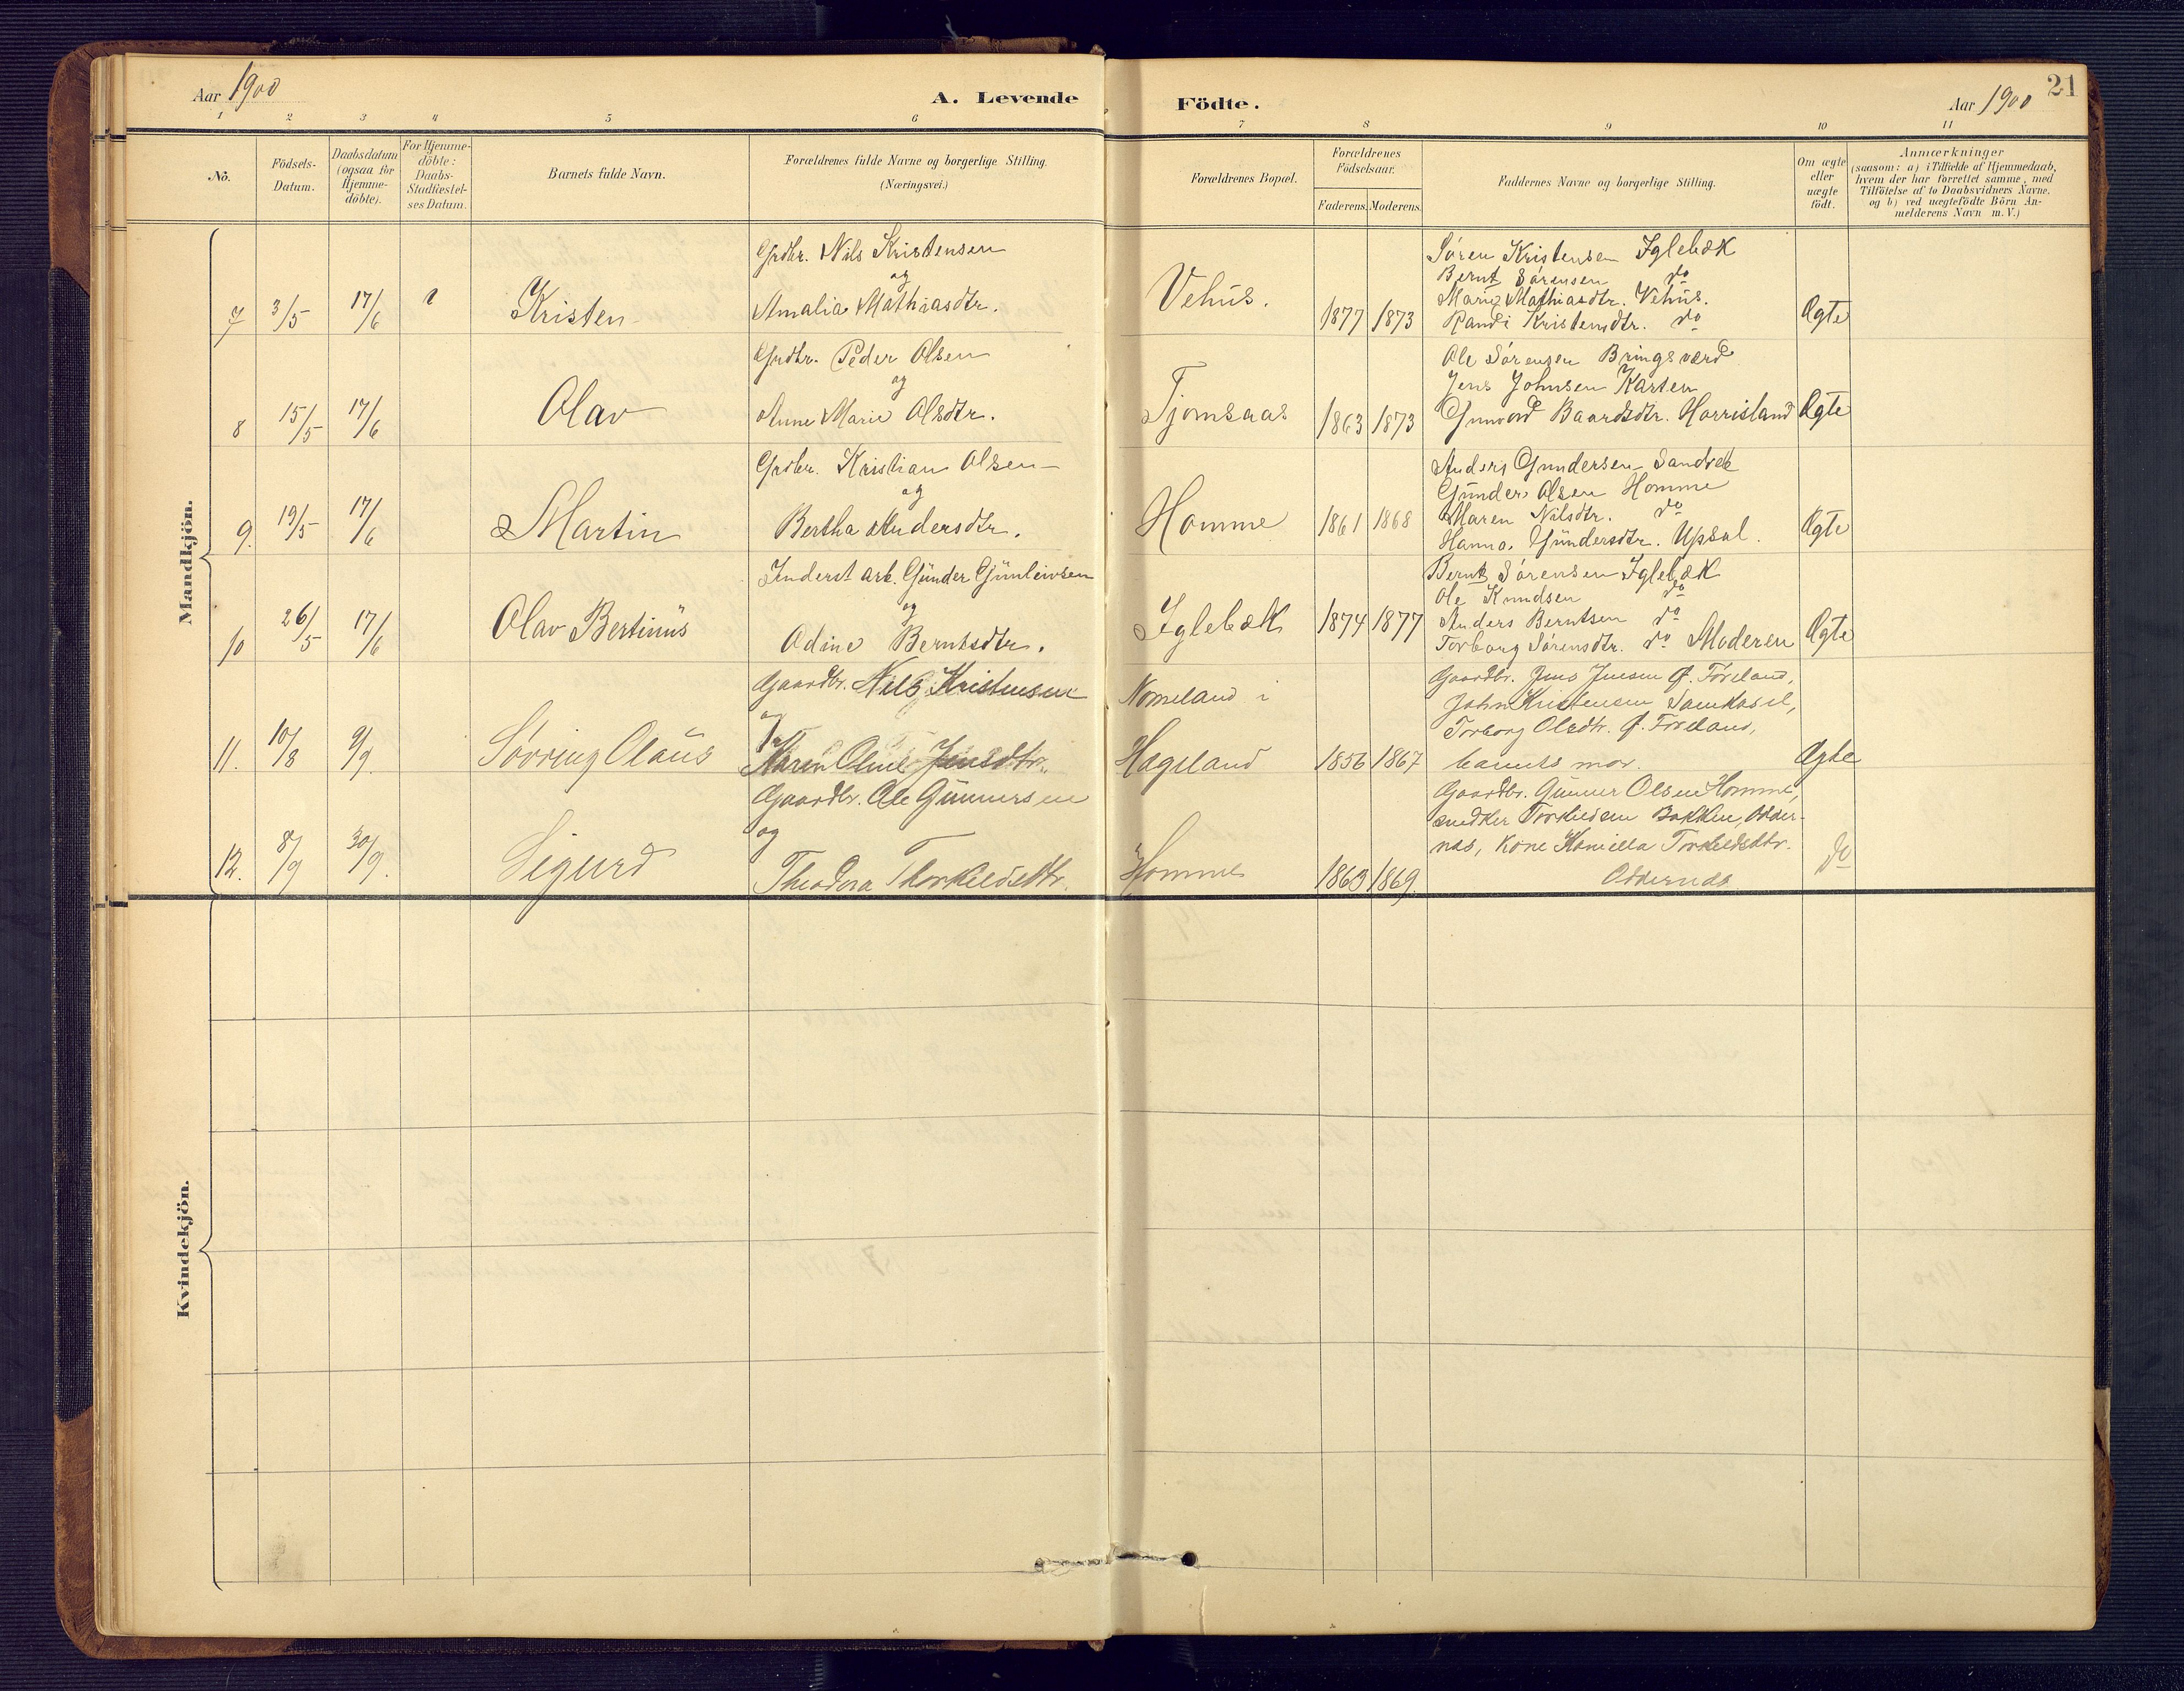 Aar 1900
A. Levende Födte.
Aar 1900
21
1 2 3 4 5 6 7 8 9 10 11
No.
Födsels-Datum.
Daabsdatum (ogsaa for Hjemmedöbte).
For Hjemmedöbte: Daabs-Stadfæstelses Datum.
Barnets fulde Navn.
Forældrenes fulde Navne og borgerlige Stilling. (Næringsvei.)
Forældrenes Bopæl.
Forældrenes Födselsaar.
Faderens. Moderens.
Faddernes Navne og borgerlige Stilling.
Om ægte eller uægte födt.
Anmærkninger
(saasom: a) i Tilfælde af Hjemmedaab, hvem der har forrettet samme, med Tilföielse af to Daabsvidners Navne, og b) ved uægtefödte Börn Anmelderens Navn m. V.)
Mandkjön.
7 3/5 17/6 Kristen
Grdbr. Nils Kristensen
og
Amalia Mathiasdtr.
Vehus. 1877 1873
Søren Kristensen Iglebæk
Bernt Sørensen do
Marie Mathiasdtr. Vehus.
Randi Kristensdtr. do
Ægte
8 15/5 17/6 Olav
Grdbr. Peder Olsen
og
Anne Marie Olsdtr.
Tjomsaas 1863 1873
Ole Sørensen Bringsværd
Jens Johnsen Karten
Gunvord Baardsdtr. Harrisland
Ægte
9. 19/5 17/6 Martin
Grdbr. Kristian Olsen
og
Bertha Andersdtr.
Homme 1861 1868
Anders Gundersen Sandvek
Gunder Olsen Homme
Maren Nilsdtr. do
Hanna Gundersdtr. Upsal.
Ægte
10 26/5 17/6 Olav Bertinus
Inderst arb. Gunder Gunleivsen
og
Odine Berntsdtr.
Iglebæk 1874 1877
Bernt Sørensen Iglebæk
Ole Knudsen do
Anders Berntsen do
Torborg Sørensdtr. do Moderen
Ægte
11. 10/8 9/9. Sövring Olaus
Gaardbr. Nils Kristensen
og
Karen Oline Jensdtr.
Nomeland i
Hægeland 1856 1867
Gaardbr. Jens Jensen Ø. Föreland,
John Kristensen
Torborg Olsdtr. Ø. Föreland,
barnets mor.
Ægte
12. 8/9 30/9. Sigurd
Gaardbr. Ole Gunnersen
og
Theodora Thorkildsdtr.
Homme 1863 1869.
Gaardbr. Gunner Olsen Homme,
snedker Torkildsen Bakken, Odder-
nes, Kone Kamilla Torkildsdtr.
Oddernes
do
Kvindekjön.